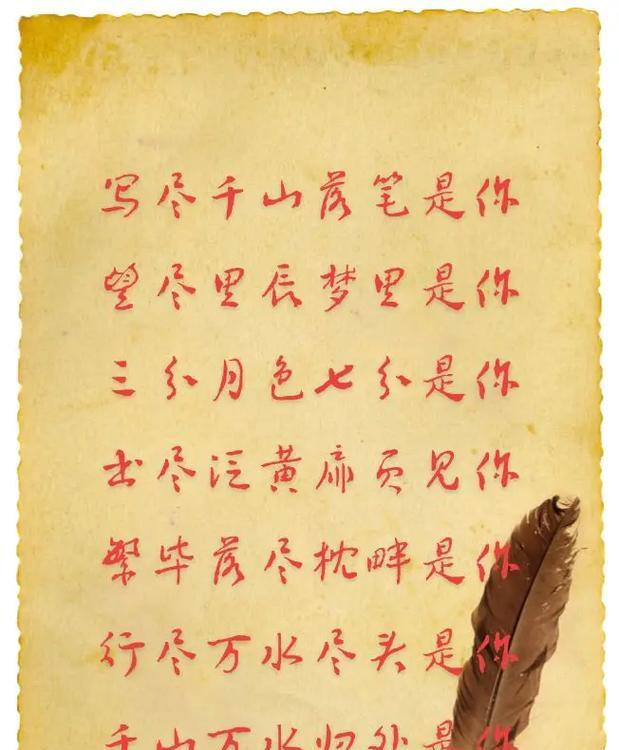 写尽千山落笔是你
望尽里辰梦里是你
三分月色七分是你
书尽泛黄扉页见你
繁毕落尽枕畔是你
行尽万水尽头是你
千山万水归处是你